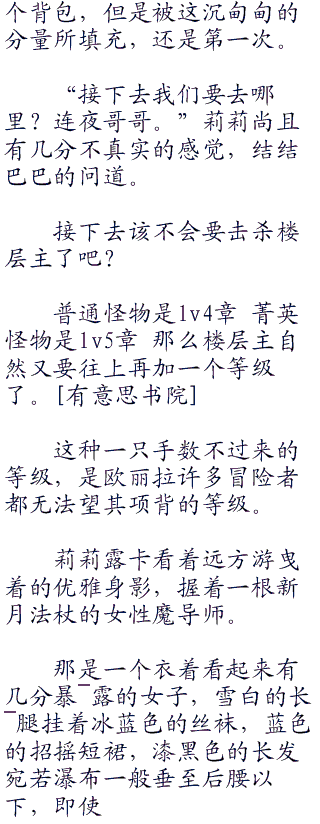 个背包，但是被这沉甸甸的
分量所填充，还是第一次。
“接下去我们要去哪
里？连夜哥哥。”莉莉尚且
有几分不真实的感觉，结结
巴巴的问道。
接下去该不会要击杀楼
层主了吧？
普通怪物是lv4章 菁英
怪物是lv5章 那么楼层主自
然又要往上再加一个等级
了。[有意思书院]
这种一只手数不过来的
等级，是欧丽拉许多冒险者
都无法望其项背的等级。
莉莉露卡看着远方游曳
着的优雅身影，握着一根新
月法杖的女性魔导师。
那是一个衣着看起来有
几分暴¯露的女子，雪白的长
¯腿挂着冰蓝色的丝袜，蓝色
的招摇短裙，漆黑色的长发
宛若瀑布一般垂至后腰以
下，即使